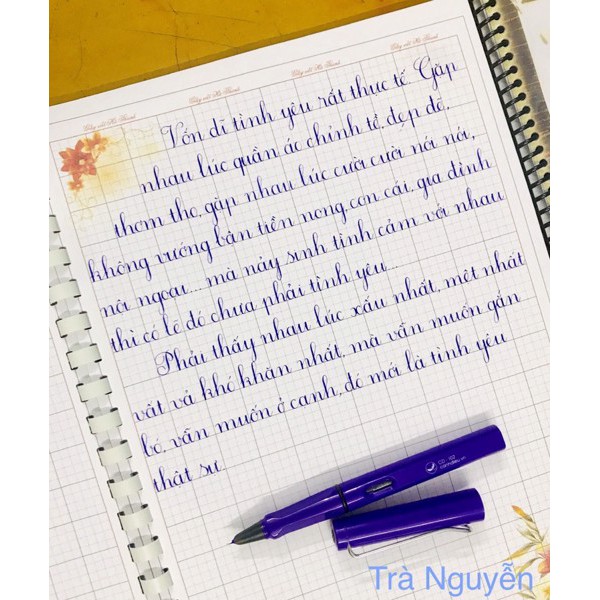 Vốn dĩ tình yêu rất thực tế. Gặp
nhau lúc quần áo chỉnh tề, đẹp đẽ,
thơm tho, gặp nhau lúc cười cười nói nói,
không vướng bận tiền nong, con cái, gia đình
nội ngoại... mà nảy sinh tình cảm với nhau
thì có lẽ đó chưa phải tình yêu...
Phải thấy nhau lúc xấu nhất, mệt nhất
vất vả khó khăn nhất, mà vẫn muốn gắn
bó, vẫn muốn ở cạnh, đó mới là tình yêu
thật sự
CD - 102
Trà Nguyễn